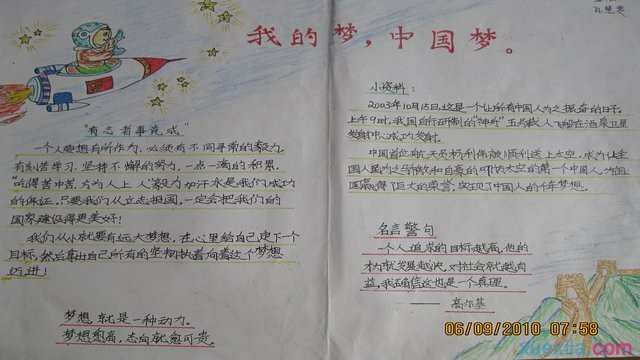 我的梦，中国梦。
"有志者事竟成"
一个人要想有所作为，必须有不同寻常的毅力，
有刻苦学习，坚持不懈的努力，一点一滴的积累。
"吃得苦中苦，方为人上人"毅力加汗水是我们成功
的保证，只要我们从立志报国，一定会把我们的
国家建设得更美好！
我们从小就要有远大梦想，在心里给自己定下一个
目标，然后拿出自己所有的坚韧执着向着这个梦想
迈进！
梦想，就是一种动力。
梦想愈高，志向就愈可贵。
小资料：
2003年10月15日，这是一个让所有中国人为之振奋的日子。
上午9时，我国自行研制的"神舟"五号载人飞船在酒泉卫星
发射中心成功发射。
中国首位航天员杨利伟被顺利送上太空，成为让全
国人民为之骄傲和自豪的叩访太空的第一个中国人，为祖
国赢得了巨大的荣誉，实现了中国人的千年梦想。
名言警句
一个人追求的目标越高，他的
才能就发展越快，对社会就越有
益，我确信这也是一个真理。
——高尔基
06/09/2010 07:58